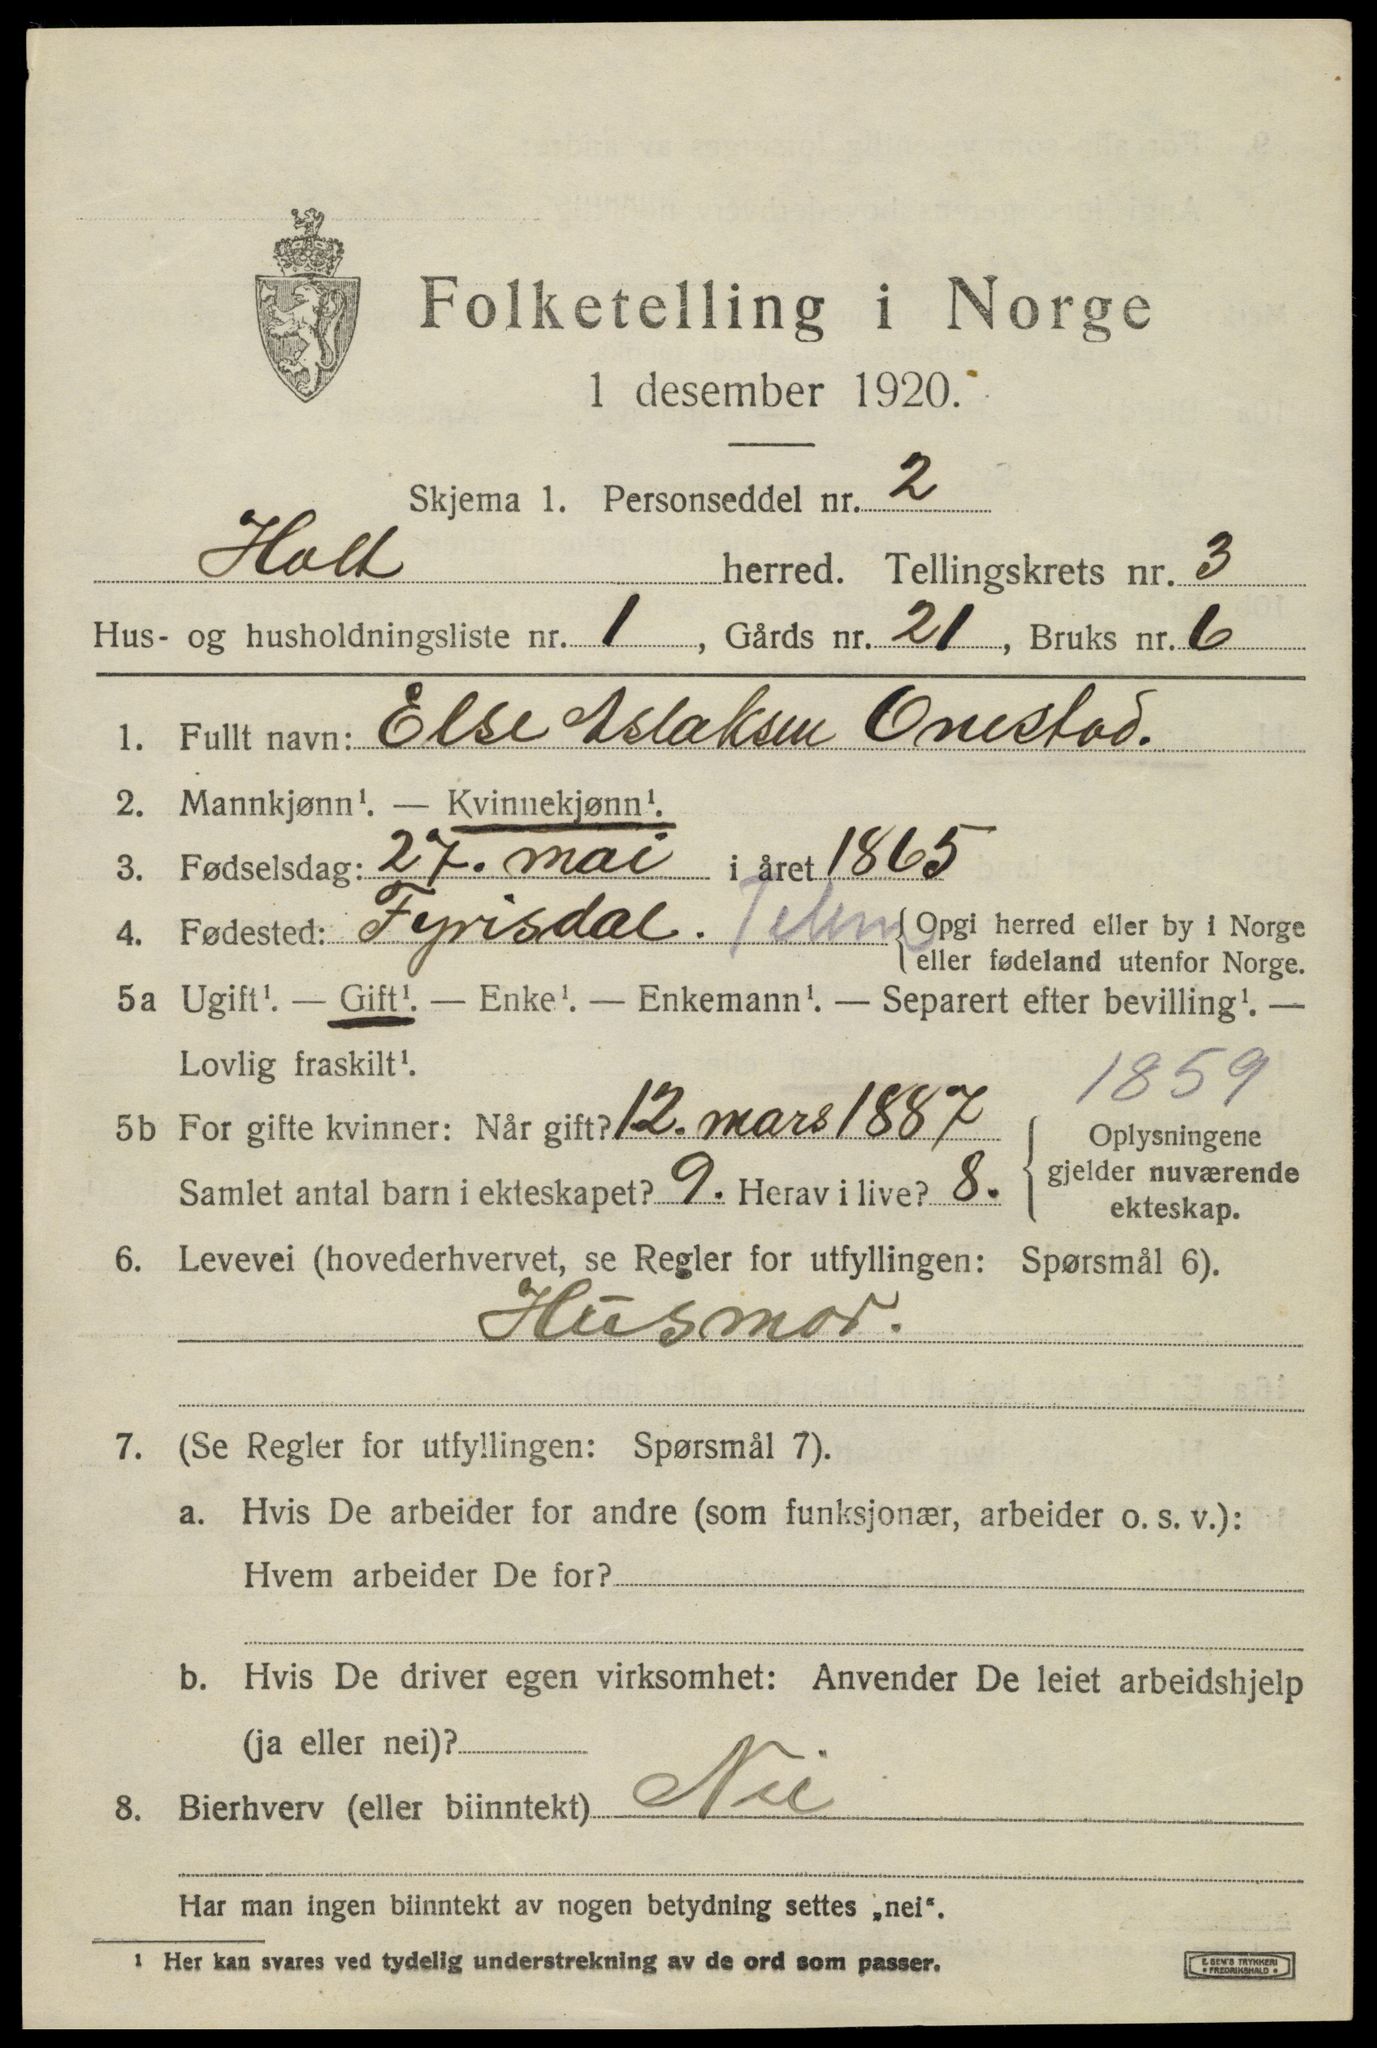 Folketelling i Norge
1 desember 1920.
Skjema 1. Personseddel nr. 2
Holt herred. Tellingskrets nr. 3
Hus- og husholdningsliste nr. 1, Gårds nr. 21, Bruks nr. 6
1. Fullt navn: Else Aslaksen Onestad.
2. Mannkjønn¹. — Kvinnekjønn¹.
3. Fødselsdag: 27. mai i året 1865
4. Fødested: Fyrisdal. Telem {Opgi herred eller by i Norge
eller fødeland utenfor Norge.
5a Ugift¹. — Gift¹. — Enke¹. — Enkemann¹. — Separert efter bevilling¹. —
Lovlig fraskilt¹.
1859
5b For gifte kvinner: Når gift? 12. mars 1887
Samlet antal barn i ekteskapet? 9. Herav i live? 8.
{Oplysningene
gjelder nuværende
ekteskap.
6. Levevei (hovederhvervet, se Regler for utfyllingen: Spørsmål 6).
Husmor.
7. (Se Regler for utfyllingen: Spørsmål 7).
a. Hvis De arbeider for andre (som funksjonær, arbeider o. s. v.):
Hvem arbeider De for?
b. Hvis De driver egen virksomhet: Anvender De leiet arbeidshjelp
(ja eller nei)?
8. Bierhverv (eller biinntekt) Nei
Har man ingen biinntekt av nogen betydning settes „nei“.
¹ Her kan svares ved tydelig understrekning av de ord som passer.
E. SEM'S TRYKKERI
FREDRIKSHALD